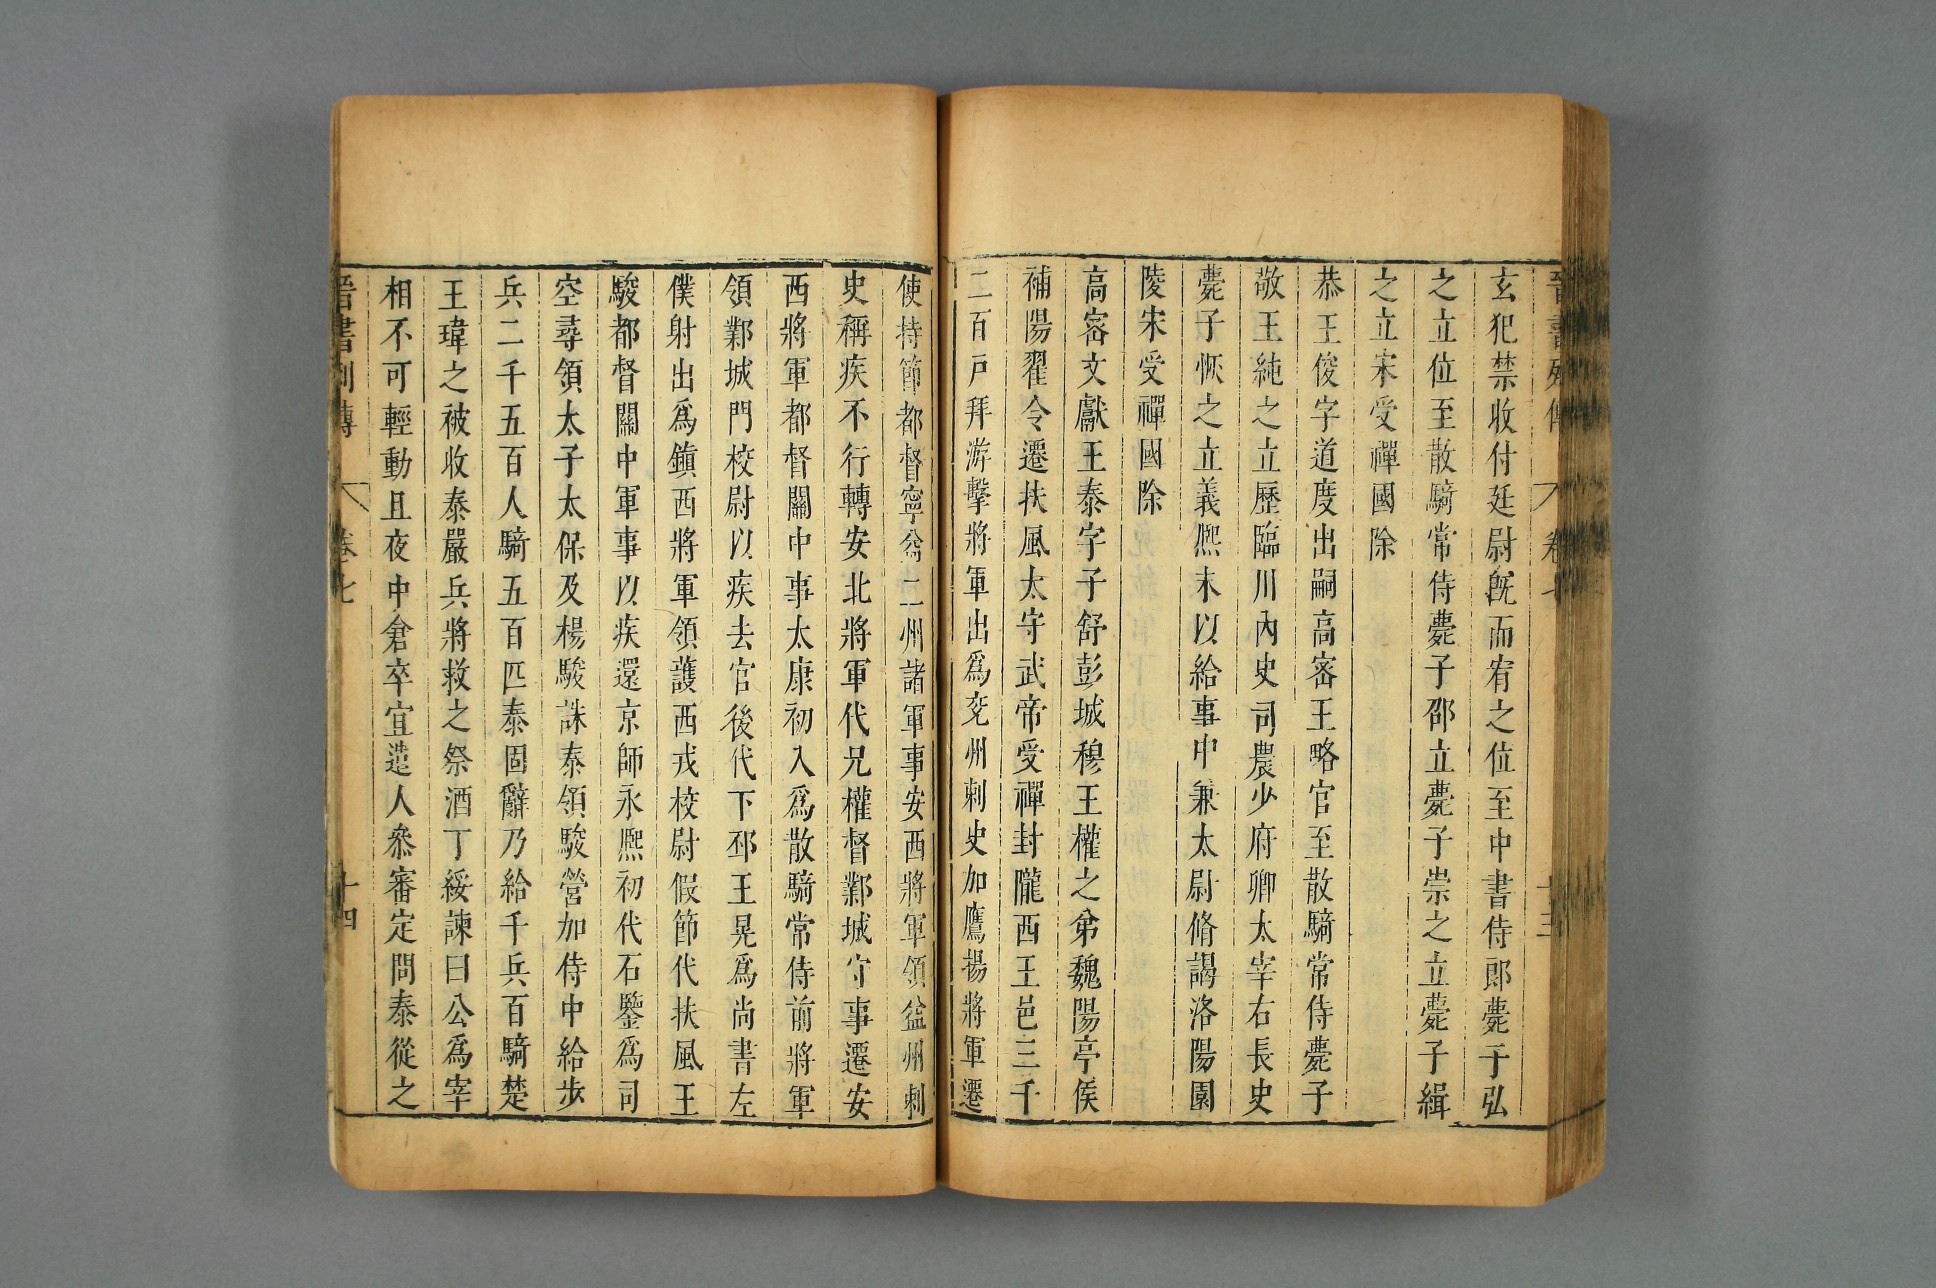 晉書列傳 卷七 十三
玄犯禁收付廷尉旣而宥之位至中書侍郎薨子弘
之立位至散騎常侍薨子邵立薨子崇之立薨子緝
之立宋受禪國除
恭王俊字道度出嗣高密王略官至散騎常侍薨子
敬王純之立歷臨川內史司農少府卿太宰右長史
薨子恢之立義熙末以給事中兼太尉脩謁洛陽園
陵宋受禪國除
高密文獻王泰字子舒彭城穆王權之弟魏陽亭侯
補陽翟令遷扶風太守武帝受禪封隴西王邑三千
二百戸拜游擊將軍出爲兗州刺史加鷹揚將軍遷
使持節都督寧益二州諸軍事安西將軍領益州刺
史稱疾不行轉安北將軍代兄權督鄴城守事遷安
西將軍都督關中事太康初入爲散騎常侍前將軍
領鄴城門校尉以疾去官後代下邳王晃爲尚書左
僕射出爲鎭西將軍領護西戎校尉假節代扶風王
駿都督關中軍事以疾還京師永熙初代石鑒爲司
空尋領太子太保及楊駿誅泰領駿營加侍中給步
兵二千五百人騎五百匹泰固辭乃給千兵百騎楚
王瑋之被收泰嚴兵將救之祭酒丁綏諫曰公爲宰
相不可輕動且夜中倉卒宜遣人叅審定問泰從之
晉書列傳 卷七 十四